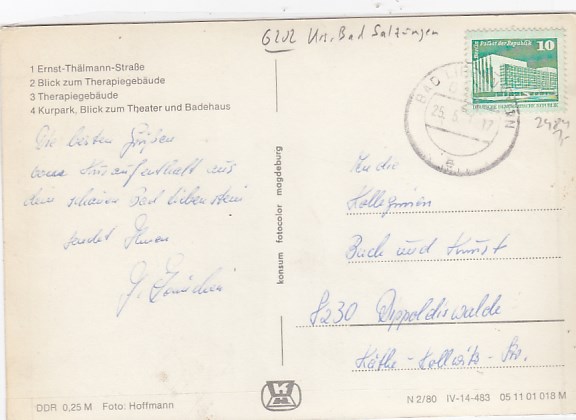 6202 Krs. Bad Salzungen
1 Ernst-Thälmann-Straße
2 Blick zum Therapiegebäude
3 Therapiegebäude
4 Kurpark, Blick zum Theater und Badehaus
Die besten Grüße
Kuraufenthalt aus
dem schönen Bad Liebenstein
sendet Ihnen
Palast der Republik 10
DEUTSCHE DEMOKRATISCHE REPUBLIK
BAD
25.5.
konsum fotocolor magdeburg
An die
Kolleginnen
Buch und Kunst
8230 Dippoldiswalde
Käthe-Kollwitz-Str.
DDR 0,25 M Foto: Hoffmann
N 2/80 IV-14-483 05 11 01 018 M